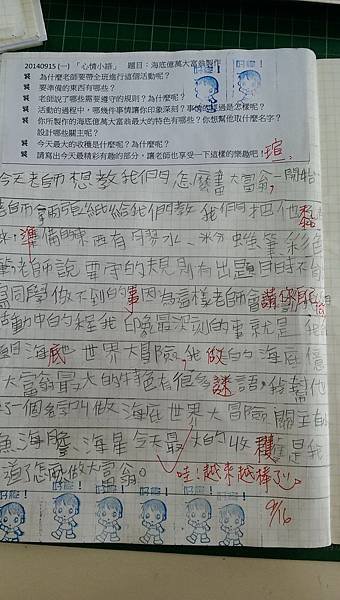 20140915 (一) 「心情小語」 題目：海底億萬大富翁製作
為什麼老師要帶全班進行這個活動呢？
要準備的東西有哪些？
老師說了哪些需要遵守的規則？為什麼呢？
活動的過程中，哪幾件事情讓你印象深刻？事情的經過是怎樣呢？
你所製作的海底億萬大富翁最大的特色有哪些？你想幫他取什麼名字？
設計哪些關主呢？
今天最大的收穫是什麼呢？為什麼呢？
請寫出今天最精彩有趣的部分，讓老師也享受一下這樣的樂趣吧！
今天老師想教我們怎麼畫大富翁，一開始
老師 給我們教我們把他黏
準備的東西有膠水、粉蠟筆彩色
筆老師說要守的規則有出題目時不
同學做不到的事因為這樣老師會請
動中的程我印象最深刻的事就是我
海底世界大冒險，我做的海底億
大富翁最大的特色有很多謎語，我幫他
了一個名字叫做海底世界大冒險關主有
魚海膽、海星今天最大的收穫是我
道了怎麼做大富翁。
哇！越來越棒了！
9/16
好棒！ 好棒！ 好棒！ 好棒！ 好棒！